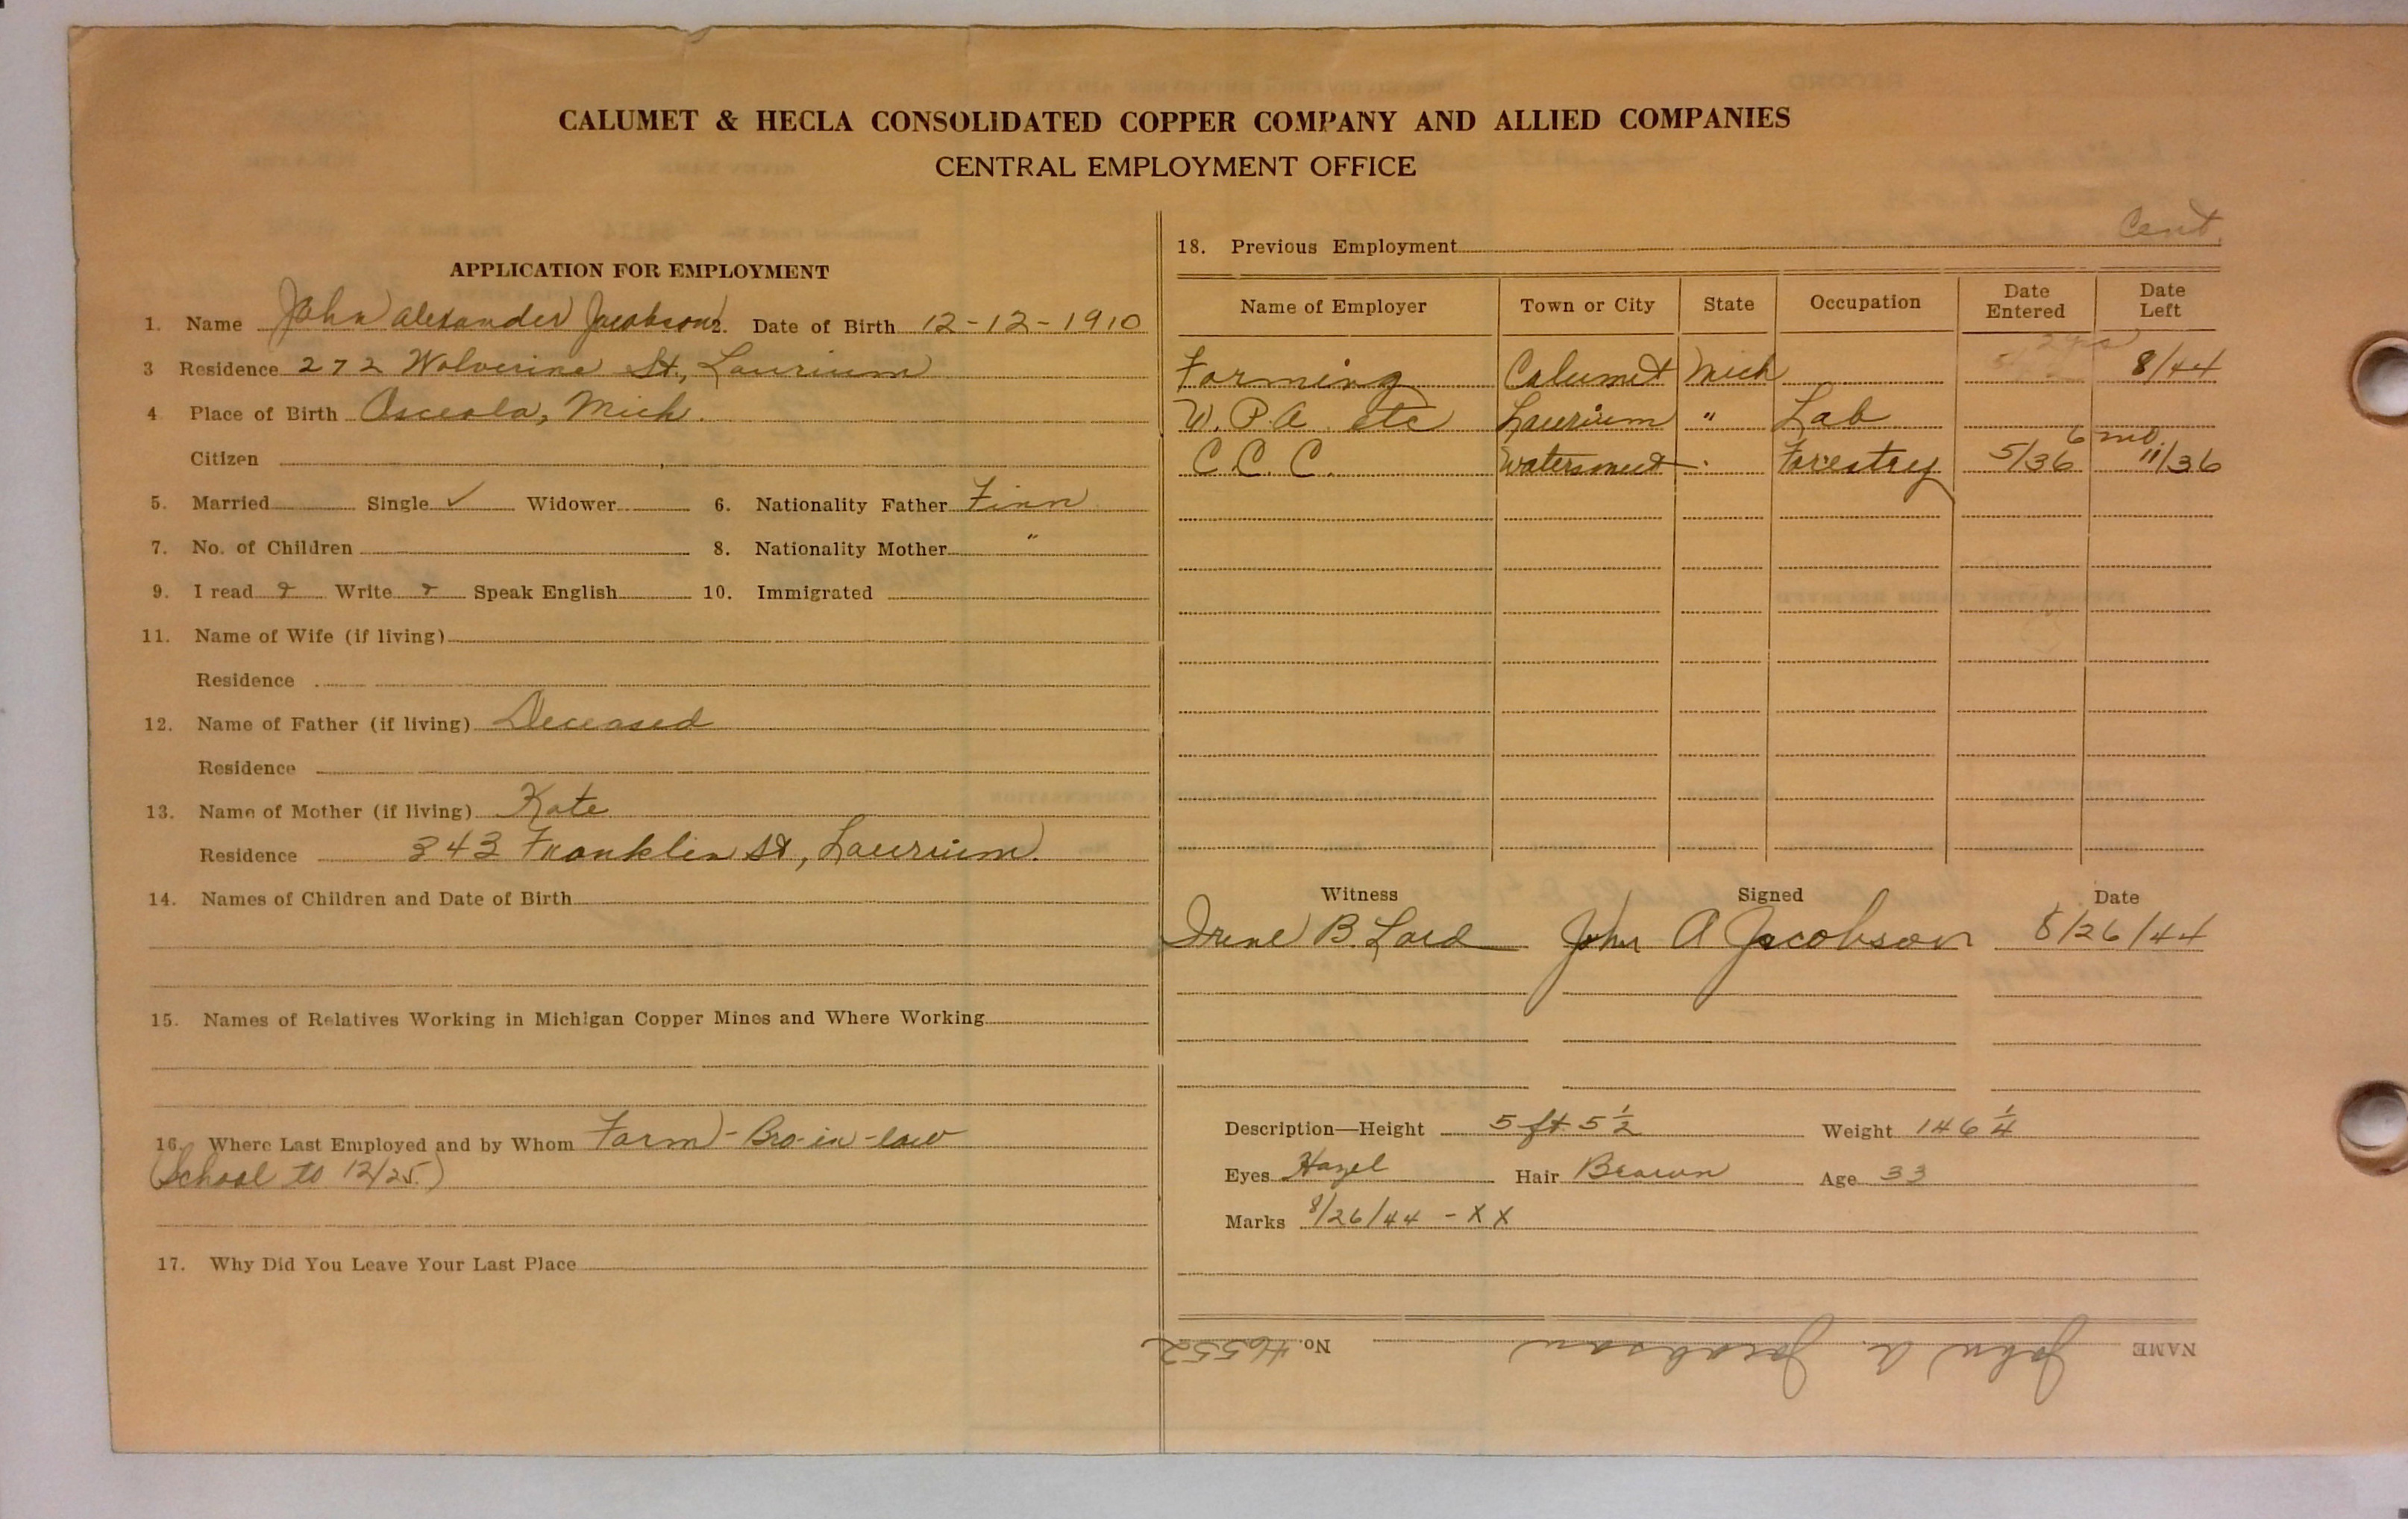 CALUMET & HECLA CONSOLIDATED COPPER COMPANY AND ALLIED COMPANIES
CENTRAL EMPLOYMENT OFFICE
APPLICATION FOR EMPLOYMENT
1. Name John Alexander Jacobson 2. Date of Birth 12-12-1910
3 Residence 272 Wolverine St., Laurium
4 Place of Birth Osceola, Mich.
Citizen
5. Married Single ✓ Widower 6. Nationality Father Finn
7. No. of Children 8. Nationality Mother "
9. I read & Write & Speak English 10. Immigrated
11. Name of Wife (if living)
Residence
12. Name of Father (if living) Deceased
Residence
13. Name of Mother (if living) Kate
Residence 343 Franklin St, Laurium.
14. Names of Children and Date of Birth
15. Names of Relatives Working in Michigan Copper Mines and Where Working
16. Where Last Employed and by Whom Farm - Bro-in-law
(School to 12/25.)
17. Why Did You Leave Your Last Place
18. Previous Employment Cent.
Name of Employer Town or City State Occupation Date Entered Date Left
2 yrs
Farming Calumet Mich 8/44
W.P.A. etc Laurium " Lab
6 mo.
C.C.C. Watersmeet " Forestry 5/36 11/36
Witness Signed Date
Irene B. Lord John A Jacobson 8/26/44
Description—Height 5 ft. 5 1/2 Weight 146 1/4
Eyes Hazel Hair Brown Age 33
Marks 8/26/44 - X X
NAME John A. Jacobson No. 46552